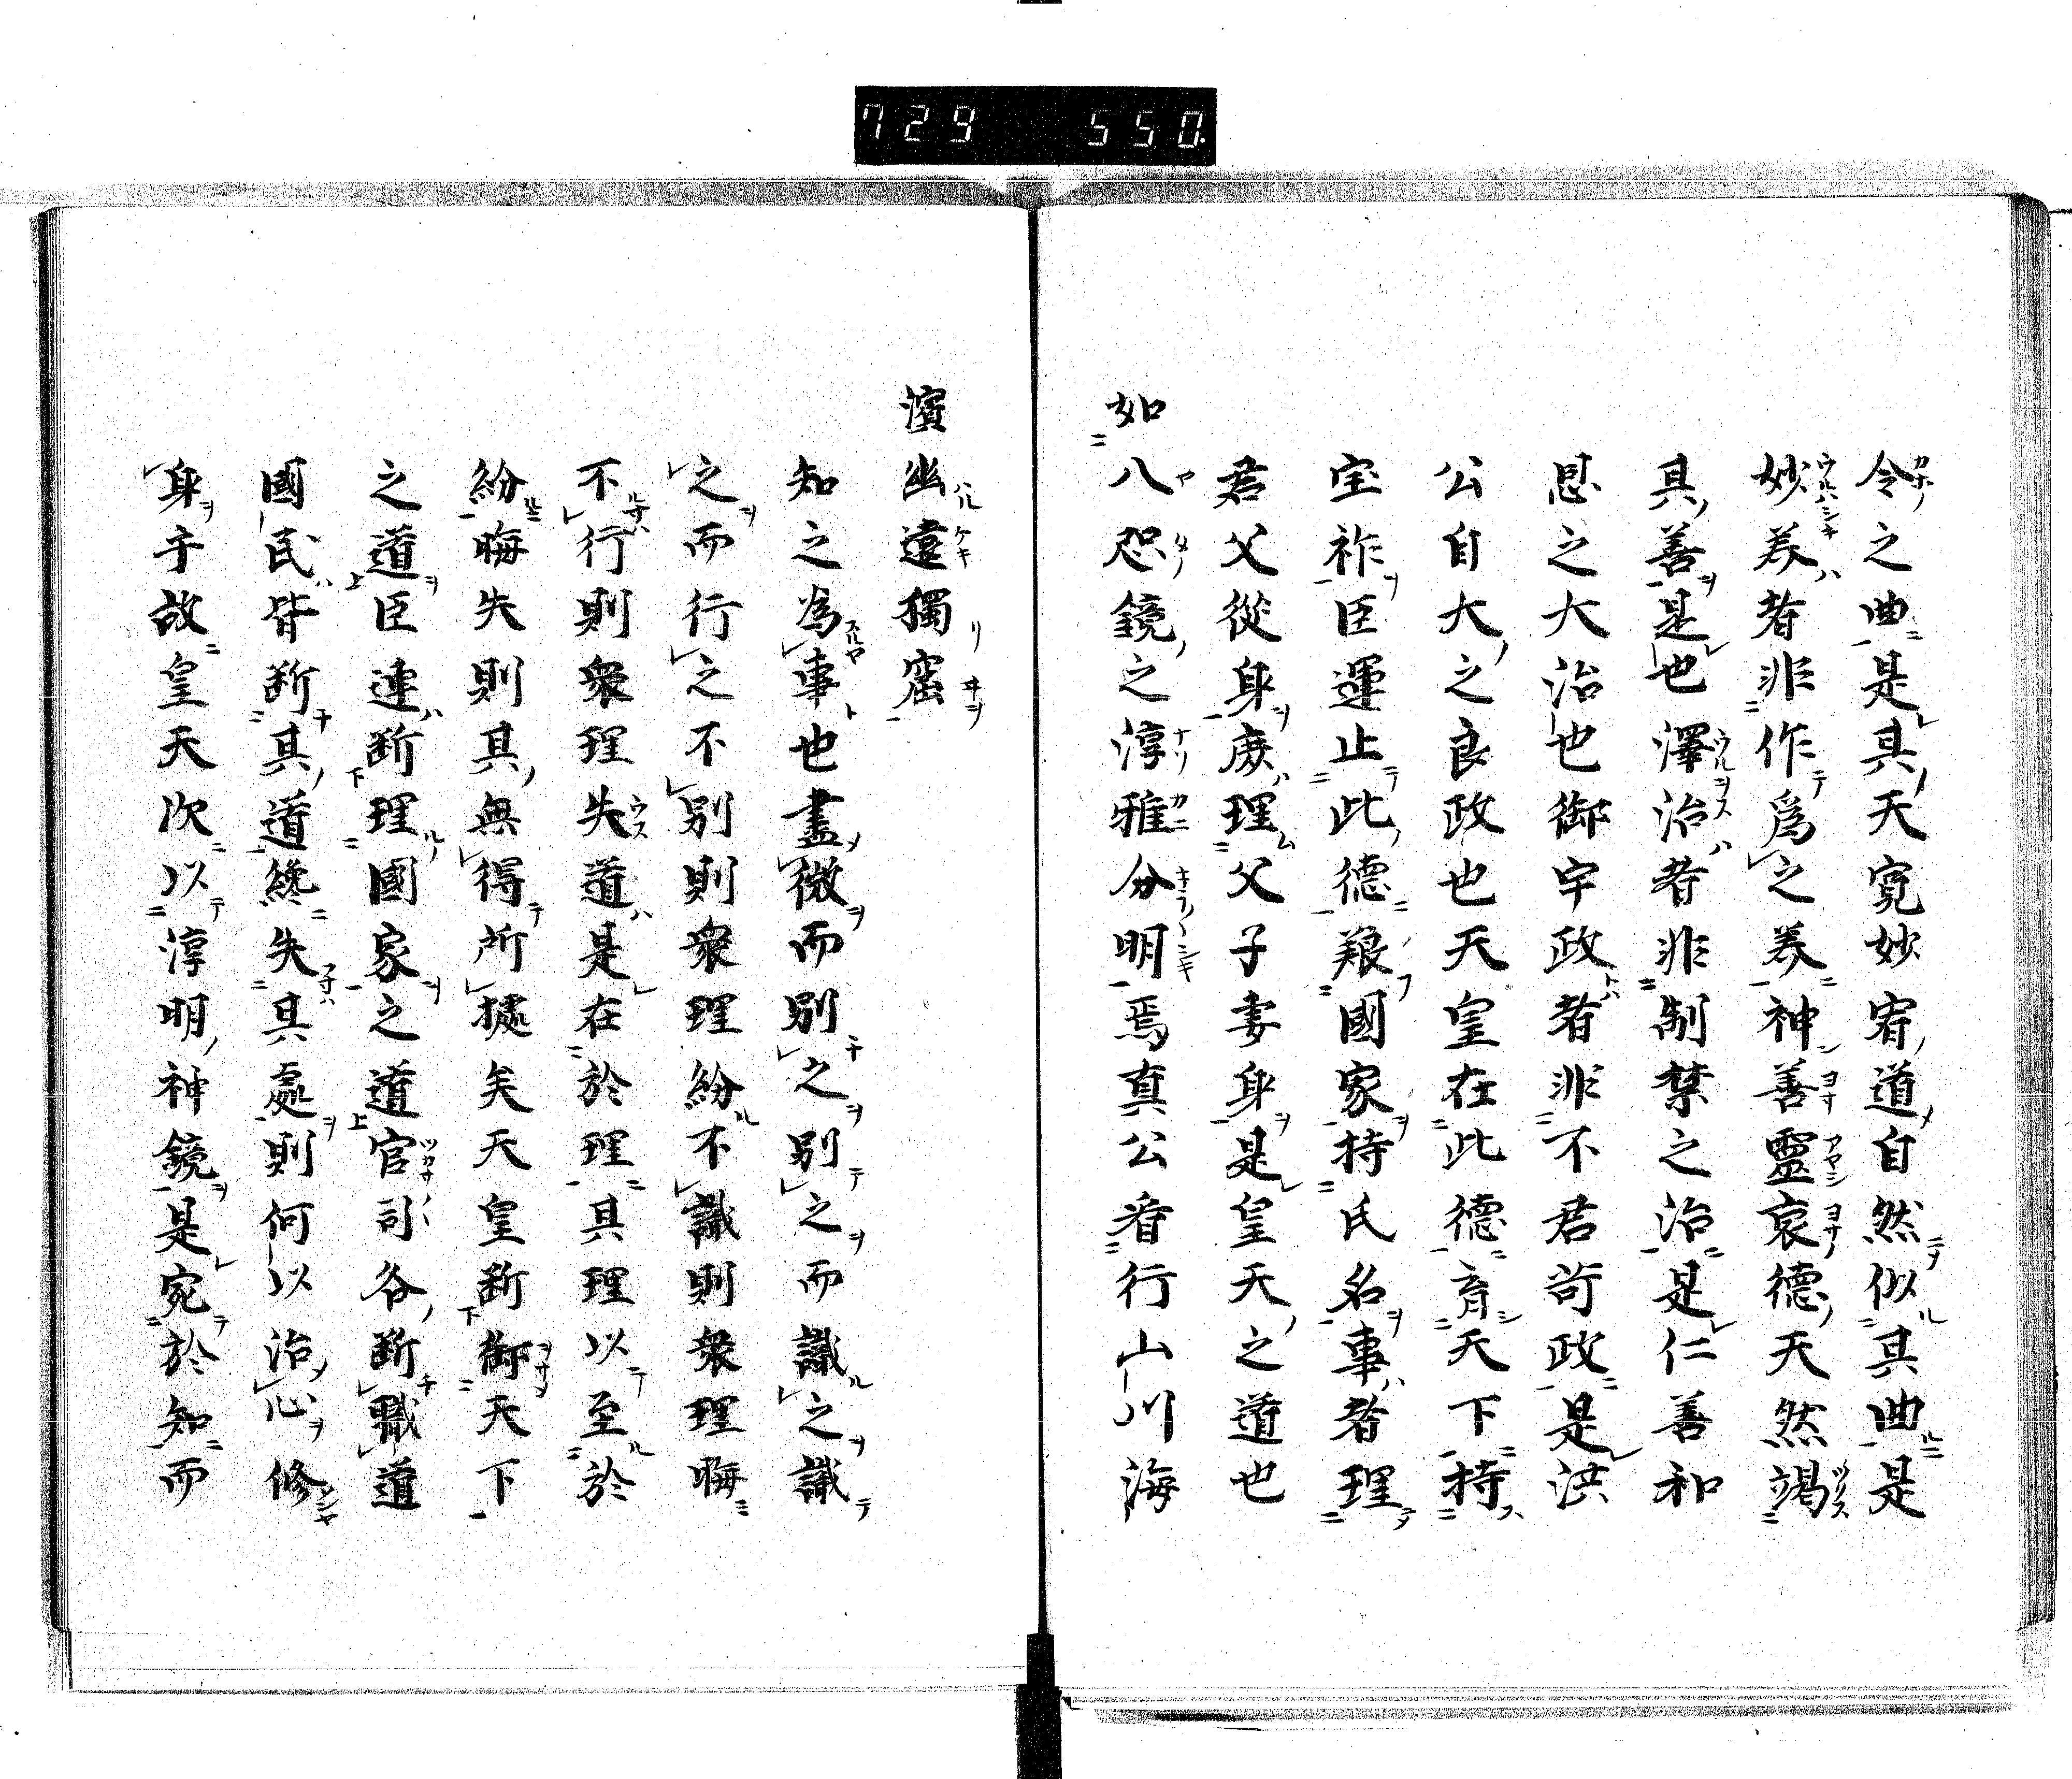 729 550.
令之曲是其天寛妙宥道自然似其曲是
妙养者非作為之养神善靈哀德天然竭
具善是也澤治者非制禁之治是仁善和
恩之大治也御宇政者非不君苛政是洪
公自大之良政也天皇在此德育天下持
宝祚臣運止此德艱國家持氏名事者理
君父從身庶理父子妻身是皇天之道也
如八咫鏡之淳雅分明焉真公看行山川海
濱幽遠獨窟
知之為事也盡微而別之別之而識之識
之而行之不別則衆理紛不識則衆理晦
不行則衆理失道是在於理其理以至於
紛晦失則其無得所據矣天皇断御天下
之道臣連断理國家之道官司各断職道
國民皆断其道終失其處則何以治心修
身乎故皇天次以淳明神鏡是宛於知而